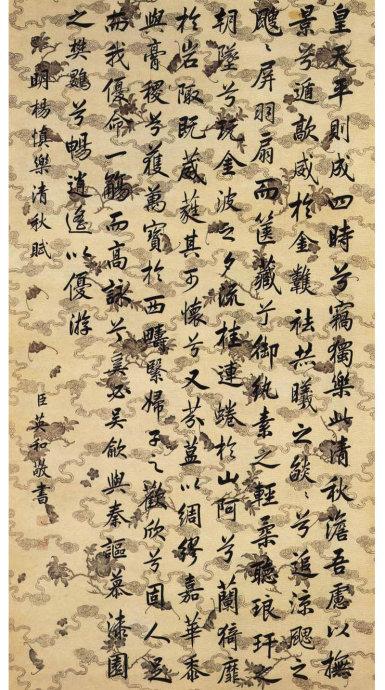 皇天平則成四時兮竊獨樂此清秋澹吾慮以撫
景兮遁歊威於金祛炎曦之燄々兮追涼颸之
飂々屏羽扇而篋藏兮御紈素之輕柔聽琅玕之
朝墜兮玩金波之夕流桂連蜷於山阿兮蘭猗靡
於岩陬既葳蕤其可懷兮又芬葐以綢繆嘉華黍
與膏稷兮穫萬寶於西疇繄婦子之歡欣兮固人足
而我優命一觴而高詠兮奚必吳歈與秦謳慕漆園
之樊鷃兮暢逍遙以優游
明楊慎樂清秋賦
臣英和敬書